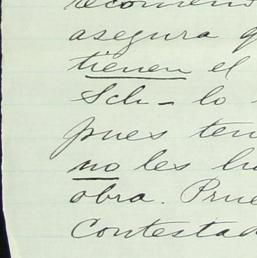 recomend
asegura q
tienen el
Sch - lo
pues ten
no les ha
obra. Prue
Contestad